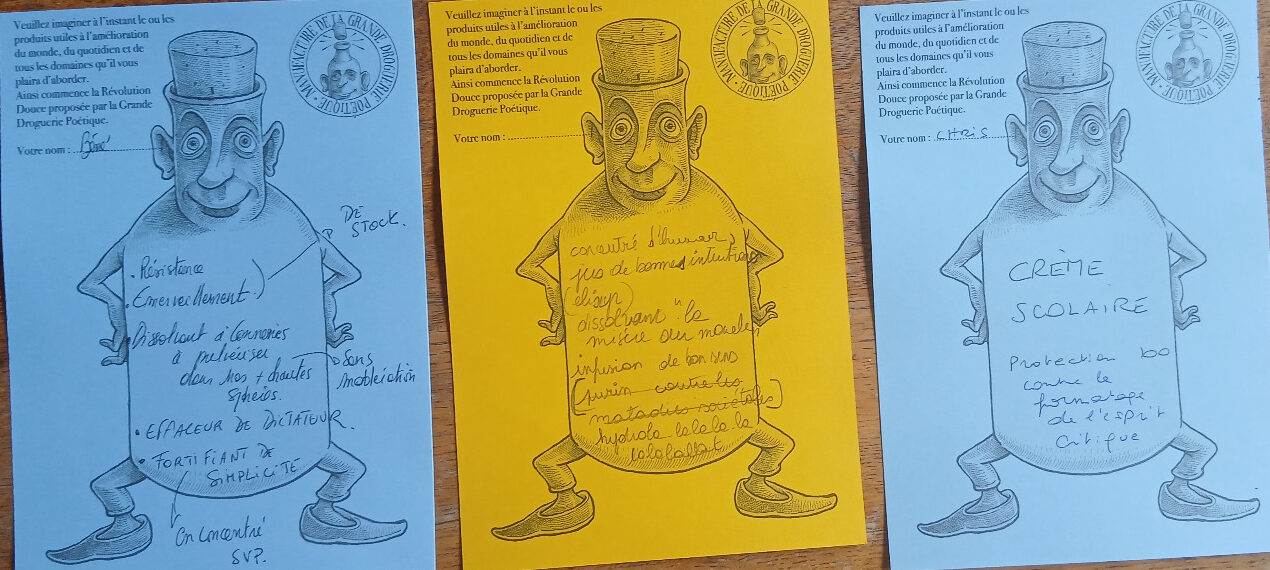 Veuillez imaginer à l'instant le ou les
produits utiles à l'amélioration
du monde, du quotidien et de
tous les domaines qu'il vous
plaira d'aborder.
Ainsi commence la Révolution
Douce proposée par la Grande
Droguerie Poétique.
Votre nom :
MANUFACTURE DE LA GRANDE DROGUERIE POÉTIQUE
DE
STOCK.
. Résistance
. Emerveillement
Dissolvant à Conneries
à pulvériser
dans nos + hautes
sphères.
Sans
modération
• EFFACEUR DE DICTATEUR.
• FORTIFIANT DE
SIMPLICITÉ
En Concentré
SVP.
Veuillez imaginer à l'instant le ou les
produits utiles à l'amélioration
du monde, du quotidien et de
tous les domaines qu'il vous
plaira d'aborder.
Ainsi commence la Révolution
Douce proposée par la Grande
Droguerie Poétique.
Votre nom :
MANUFACTURE DE LA GRANDE DROGUERIE POÉTIQUE
concentré d'humour
jus de bonnes intentions
dissolvant "la
misère du monde"
infusion de bon sens
(purin contre les
maladies sociétales)
Veuillez imaginer à l'instant le ou les
produits utiles à l'amélioration
du monde, du quotidien et de
tous les domaines qu'il vous
plaira d'aborder.
Ainsi commence la Révolution
Douce proposée par la Grande
Droguerie Poétique.
Votre nom : CHRIS
MANUFACTURE DE LA GRANDE DROGUERIE POÉTIQUE
CRÈME
SCOLAIRE
Protection 100
contre le
formatage
de l'esprit
Critique